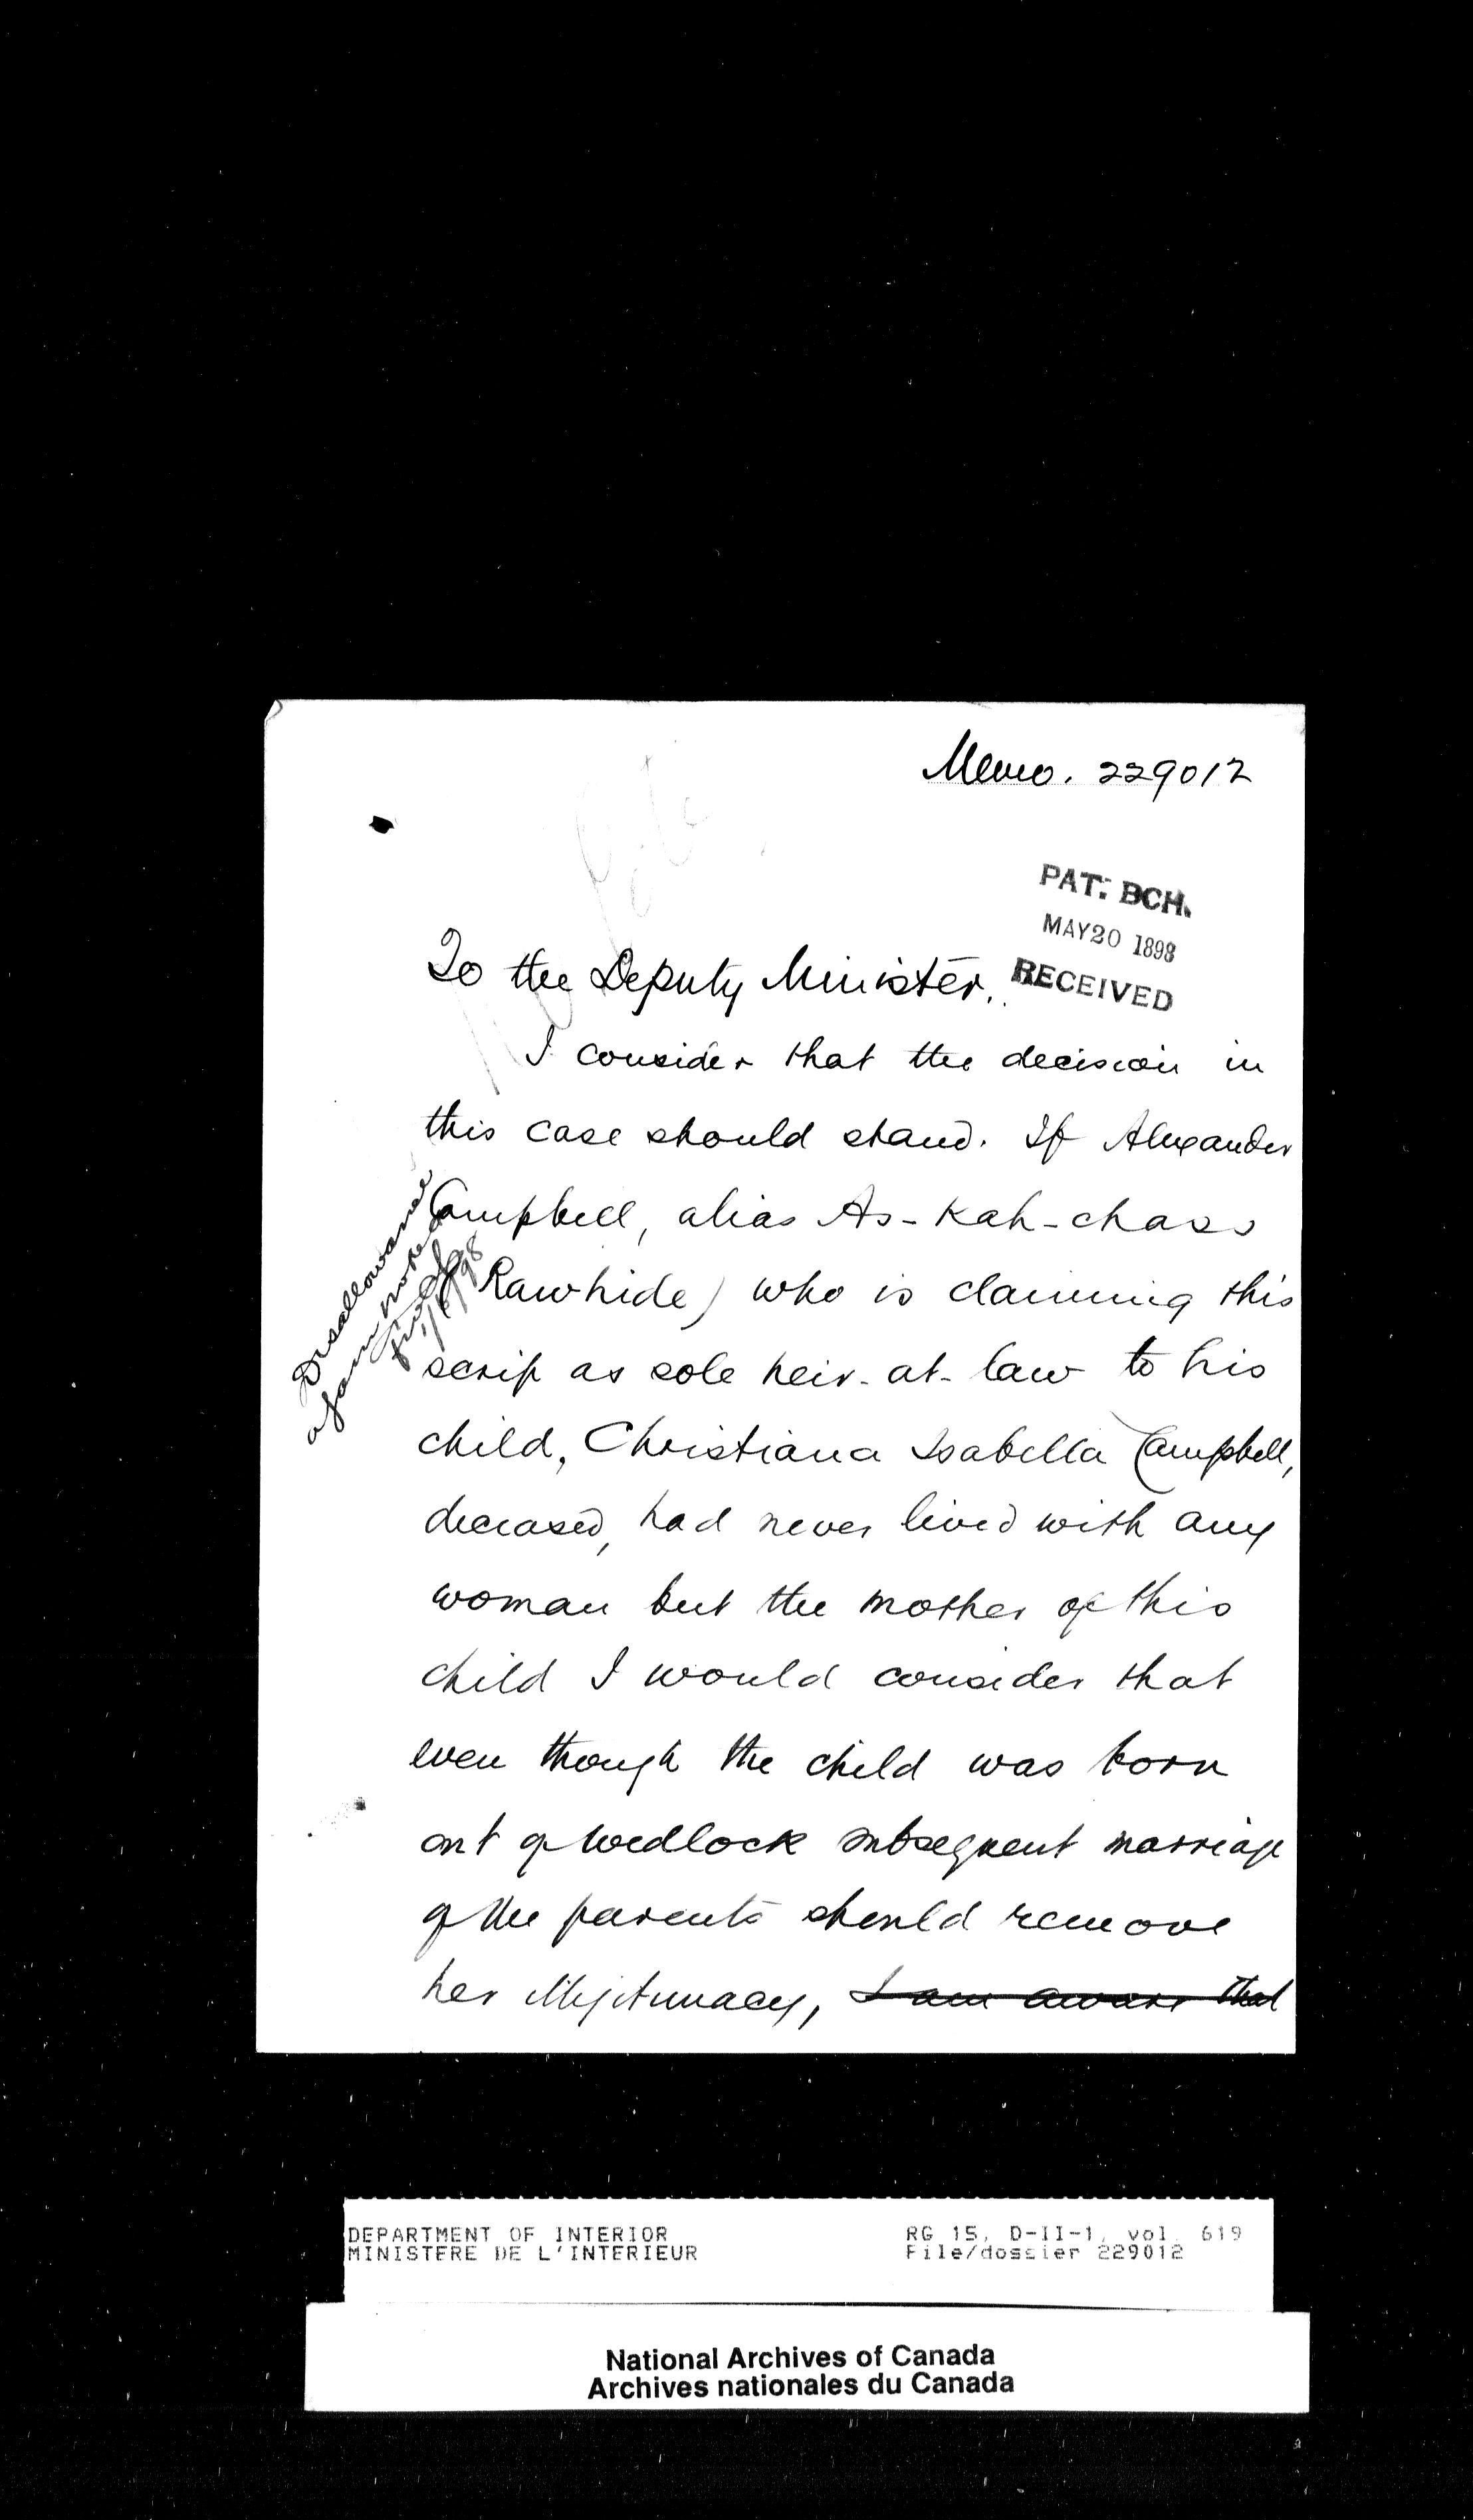 Memo. 229012
PAT. BCH.
MAY 20 1898
RECEIVED
To the Deputy Minister.
I consider that the decision in
this case should stand. If Alexander
Campbell, alias As-Kah-chass
(Rawhide) who is claiming this
scrip as sole heir-at-law to his
child, Christiana Isabella Campbell,
deceased, had never lived with any
woman but the mother of this
child I would consider that
even though the child was born
out of wedlock subsequent marriage
of the parents should remove
her illegitimacy, I am aware that
Disallowance
again noted
1/6/98
DEPARTMENT OF INTERIOR
MINISTERE DE L'INTERIEUR
RG 15, D-II-1, vol. 619
File/dossier 229012
National Archives of Canada
Archives nationales du Canada